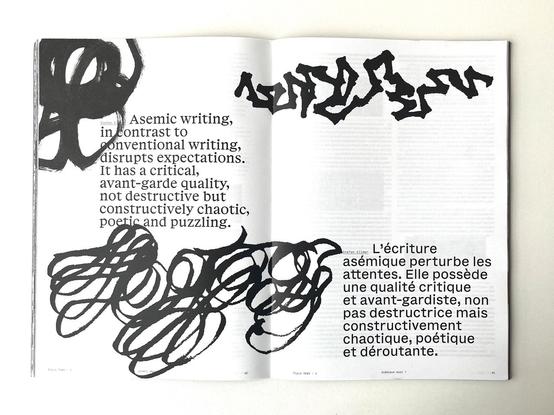 Asemic writing,
in contrast to
conventional writing,
disrupts expectations.
It has a critical,
avant-garde quality,
not destructive but
constructively chaotic,
poetic and puzzling.
L’écriture
asémique perturbe les
attentes. Elle possède
une qualité critique
et avant-gardiste, non
pas destructrice mais
constructivement
chaotique, poétique
et déroutante.